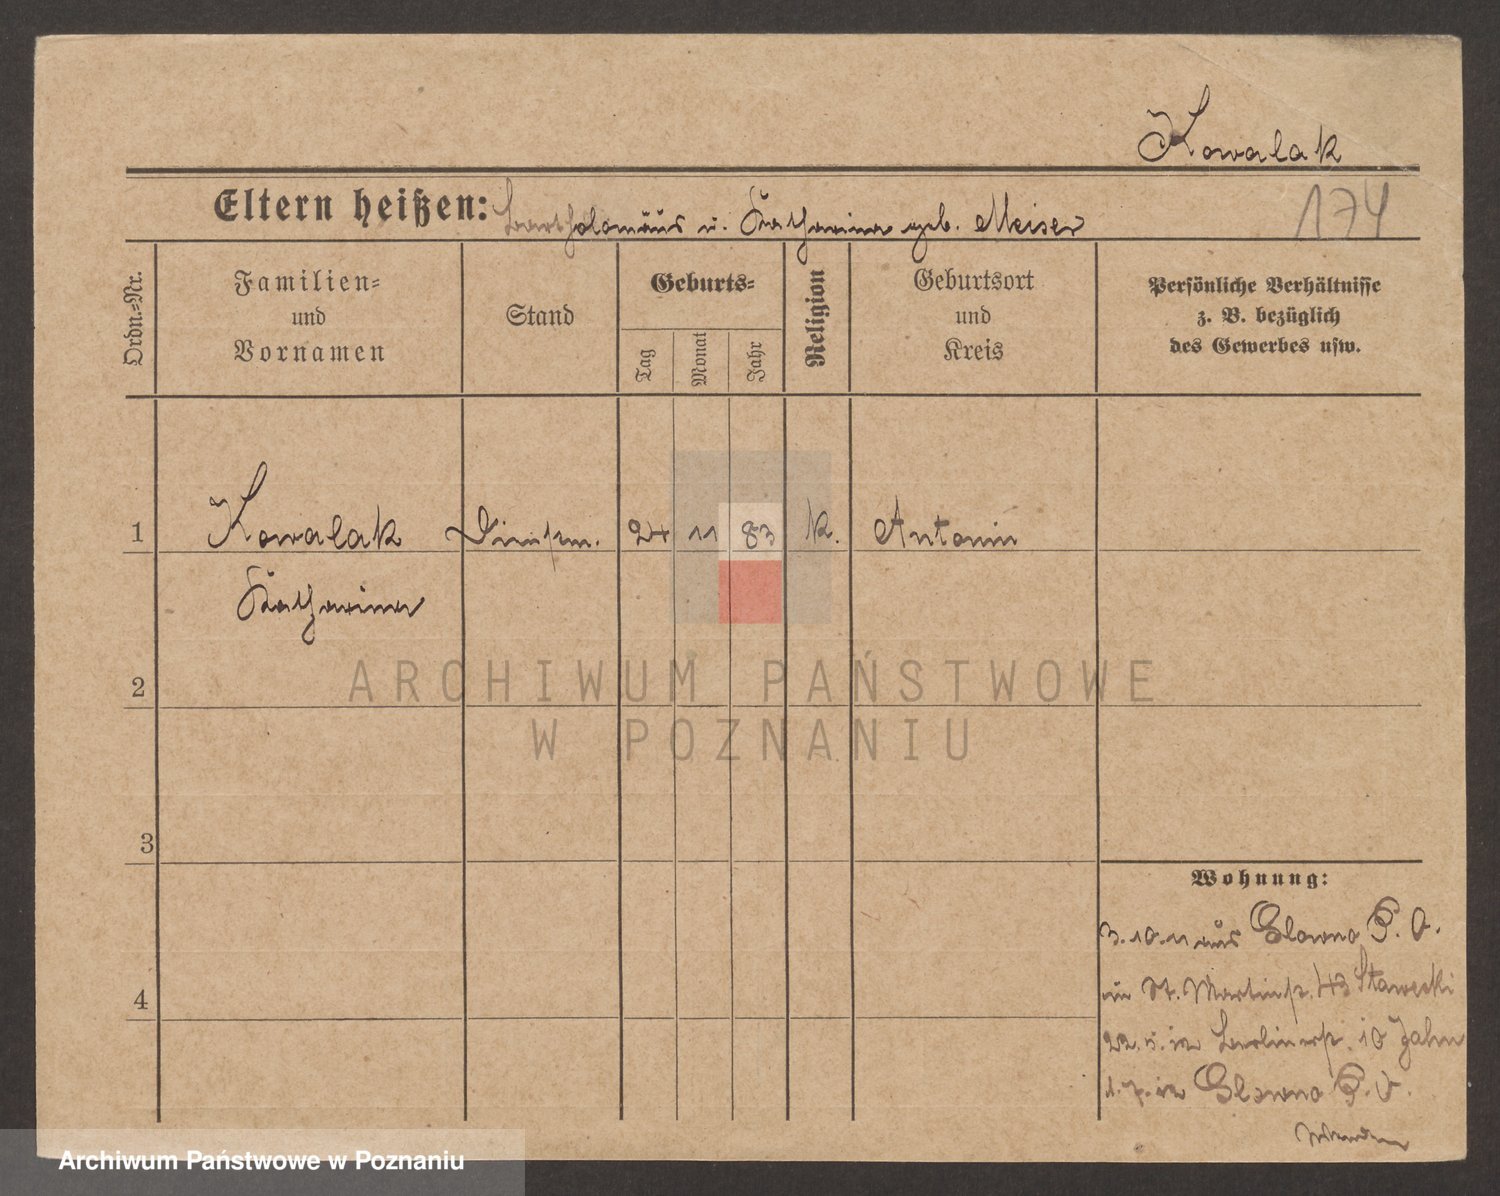 Kowalak
174
Eltern heißen: Bartholomäus u. Katharina geb. Meiser
Ordn.-Nr.
Familien-
und
Vornamen
Stand
Geburts-
Tag
Monat
Jahr
Religion
Geburtsort
und
Kreis
Persönliche Verhältnisse
z. B. bezüglich
des Gewerbes usw.
1 Kowalak Dienstm. 24 11 83 k. Antonin
Katharina
2
3
4
ARCHIWUM PAŃSTWOWE
W POZNANIU
Wohnung:
3.10.11 aus Glowno P. O.
St. Martinstr. 43 Stawecki
22.5.12 Berlinerstr. 10 Jahn
1.7.12 Glowno P. O.
Archiwum Państwowe w Poznaniu